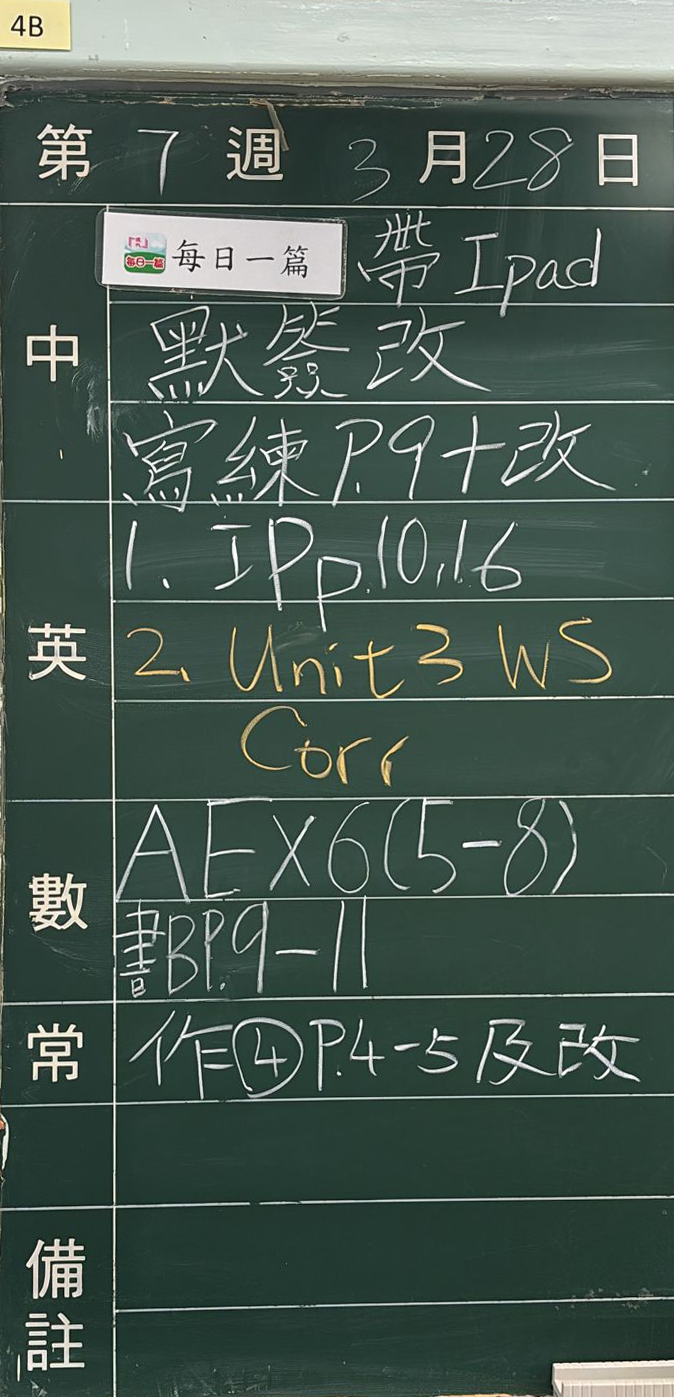 4B
第 7 週 3 月 28 日
中
每日一篇 每日一篇 帶 Ipad
默簽改
寫練 P.9+改
英
1. IP p.10,16
2. Unit 3 WS
Corr
數
AEX6(5-8)
書BP.9-11
常
作④P.4-5及改
備
註